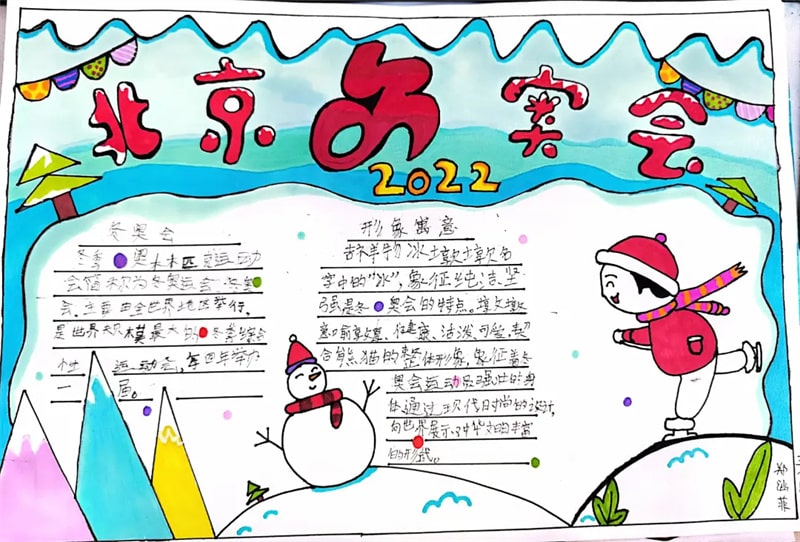 北京冬奥会
2022
冬奥会
冬季奥林匹克运动
会简称为冬奥运会。冬奥
会.主要由全世界地区举行.
是世界规模最大的冬季综合
性运动会,每四年举办
一届。
形象寓意
吉祥物冰墩墩名
字中的“冰”,象征纯洁.坚
强是冬奥会的特点。墩墩
敦厚.健康、活泼、可爱,契
合熊猫的整体形象,象征着冬
奥会运动员强壮的身
体通过现代时尚的设计,
向世界展示的丰富
的形式。